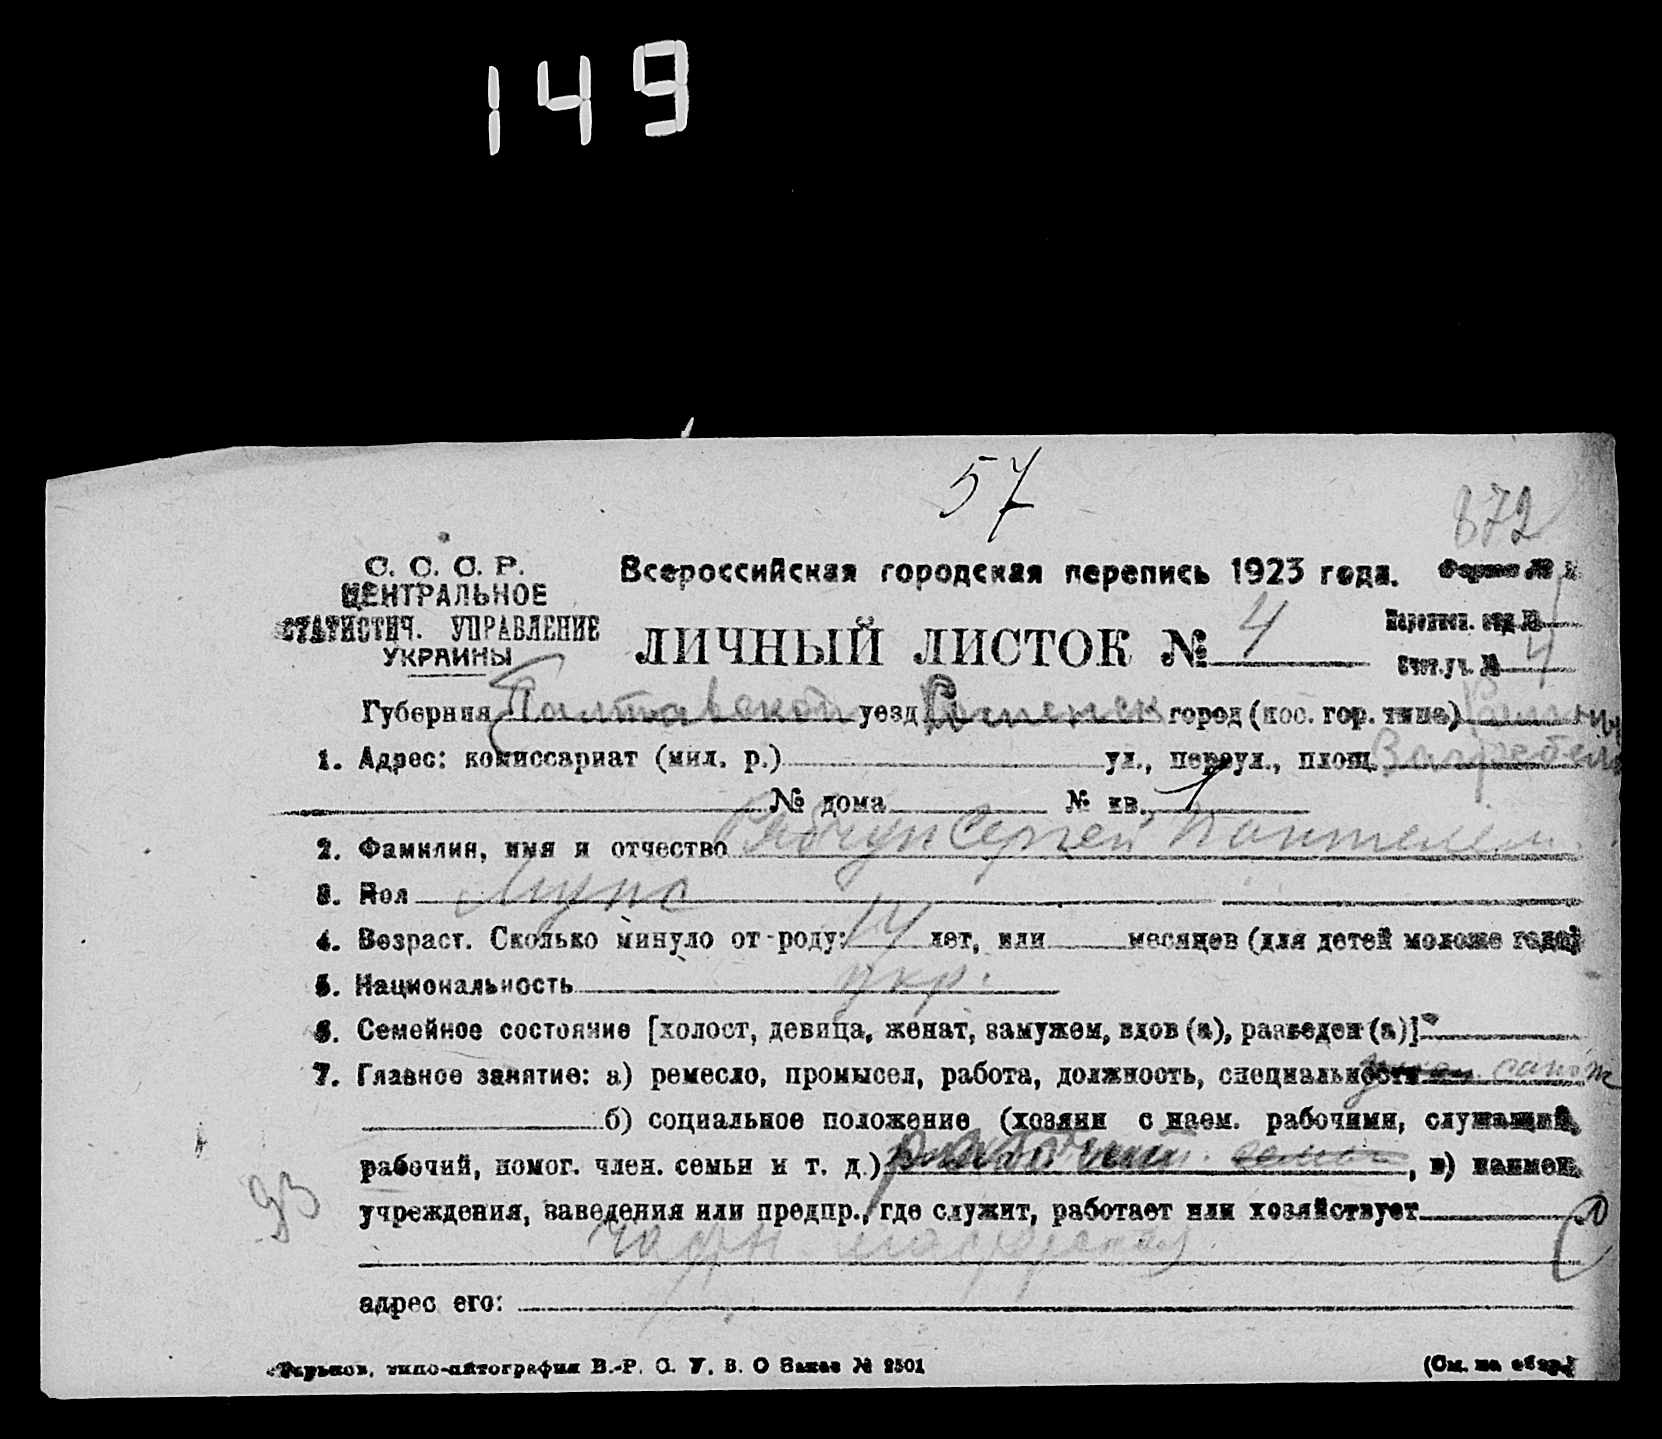 149
57
872
С. С. С. Р.
ЦЕНТРАЛЬНОЕ
СТАТИСТИЧ. УПРАВЛЕНИЕ
УКРАИНЫ
Всероссийская городская перепись 1923 года. Форма №
ЛИЧНЫЙ ЛИСТОК № 4
Переписн. отд. №
Счет. уч. № 4
Губерния Полтавской уезд Роменск город (пос. гор. типа) Ромны
1. Адрес: комиссариат (мил. р.) ул., переул., площ.
№ дома № кв. 1
2. Фамилия, имя и отчество Рябчун Сергей Пантелем.
3. Пол Мужс
4. Возраст. Сколько минуло от роду: 14 лет, или месяцев (для детей моложе года)
5. Национальность укр.
6. Семейное состояние [холост, девица, женат, замужем, вдов (а), разведен (а)]
7. Главное занятие: а) ремесло, промысел, работа, должность, специальность учен. сапож
б) социальное положение (хозяин с наем. рабочими, служащий,
рабочий, помог. член. семьи и т. д.) рабочий , в) наимен.
93
учреждения, заведения или предпр., где служит, работает или хозяйствует
адрес его:
Харьков, типо-литография В.-Р. С. У. В. О Заказ № 2501
(См. на обор.)